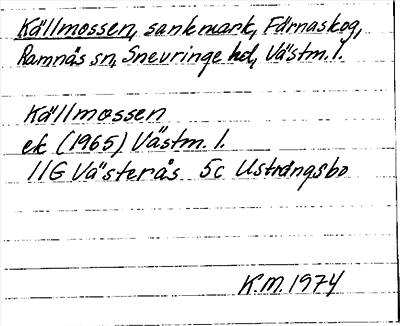 Källmossen, sankmark, Färnaskog,
Ramnäs sn, Snevringe hd, Västm. l.
Källmossen
ek (1965) Västm. l.
11G Västerås 5c Ustrångsbo
K.M. 1974